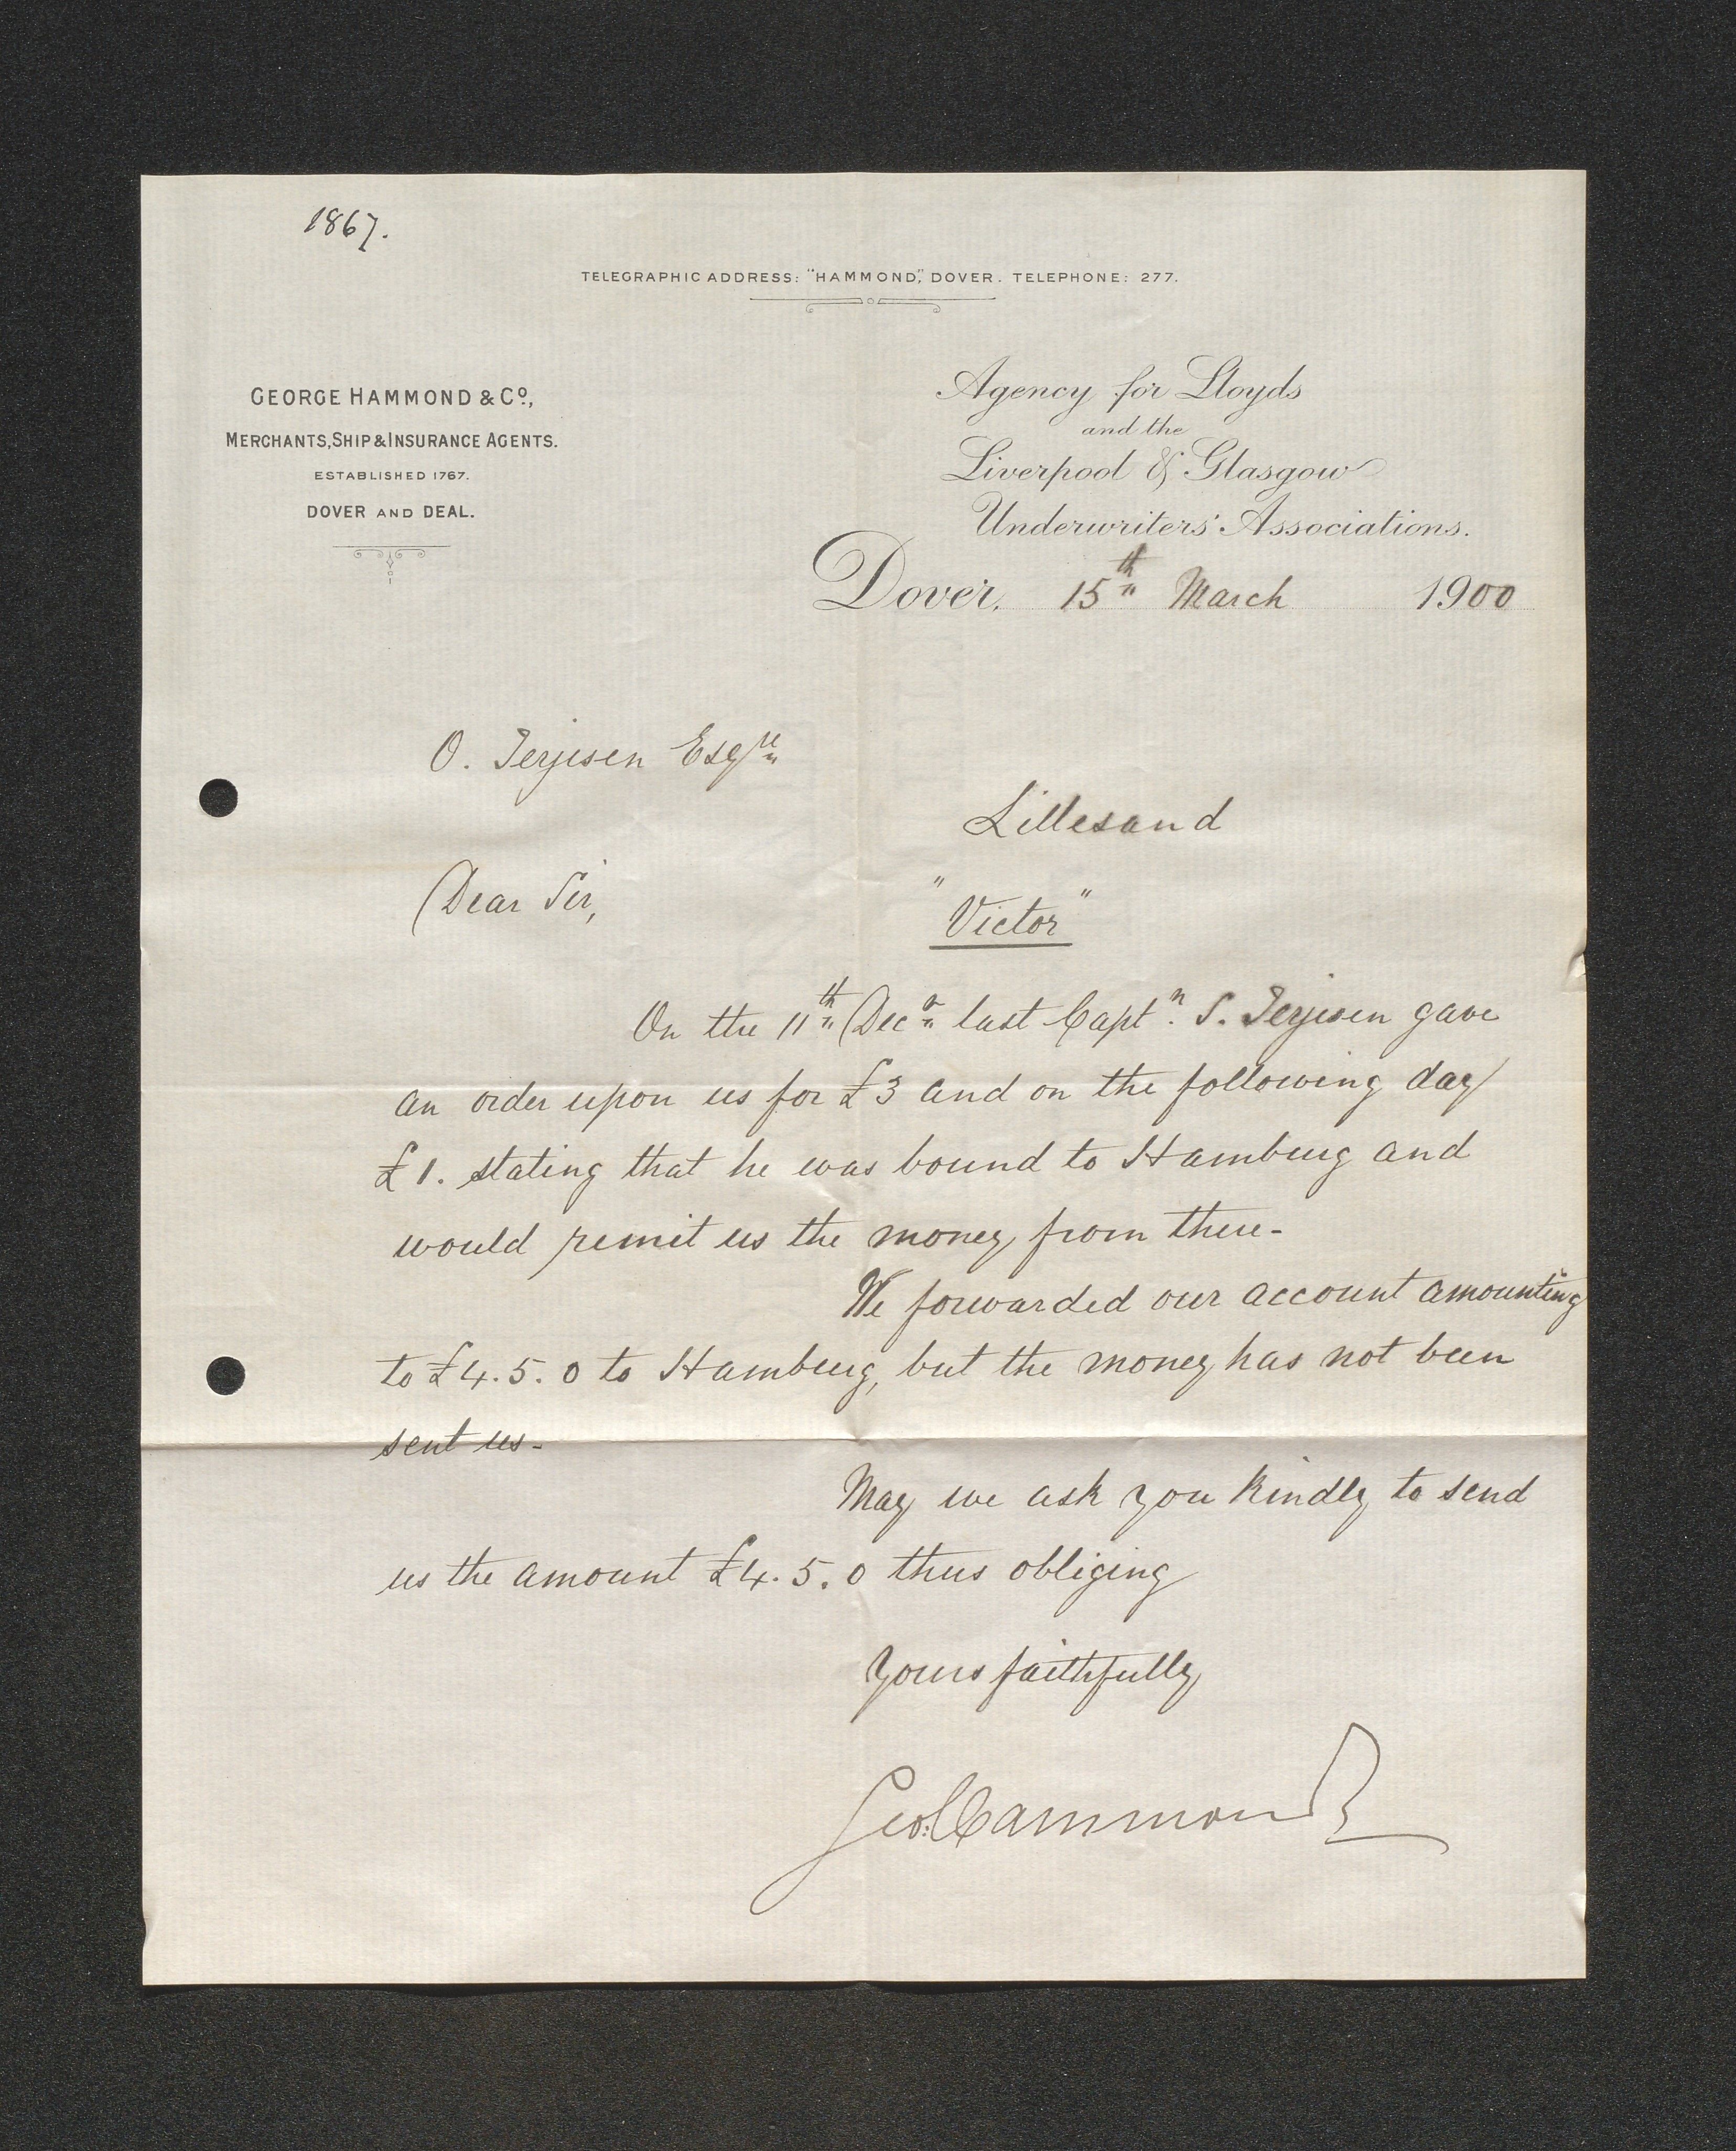 1867.
TELEGRAPHIC ADDRESS: "HAMMOND," DOVER. TELEPHONE: 277.
GEORGE HAMMOND & Co.,
MERCHANTS, SHIP & INSURANCE AGENTS.
ESTABLISHED 1767.
DOVER AND DEAL.
Agency for Lloyds
and the
Liverpool & Glasgow
Underwriters' Associations.
Dover, 15th March 1900
O. Terjesen Esqre
Lillesand
Dear Sir,
"Victor"
On the 11th Decr last Captn. S. Terjesen gave
an order upon us for £3 and on the following day
£1. stating that he was bound to Hamburg and
would remit us the money from there-
We forwarded our account amounting
to £4.5.0 to Hamburg, but the money has not been
sent us-
May we ask you kindly to send
us the amount £4.5.0 thus obliging
Yours faithfully
Geo: Hammond